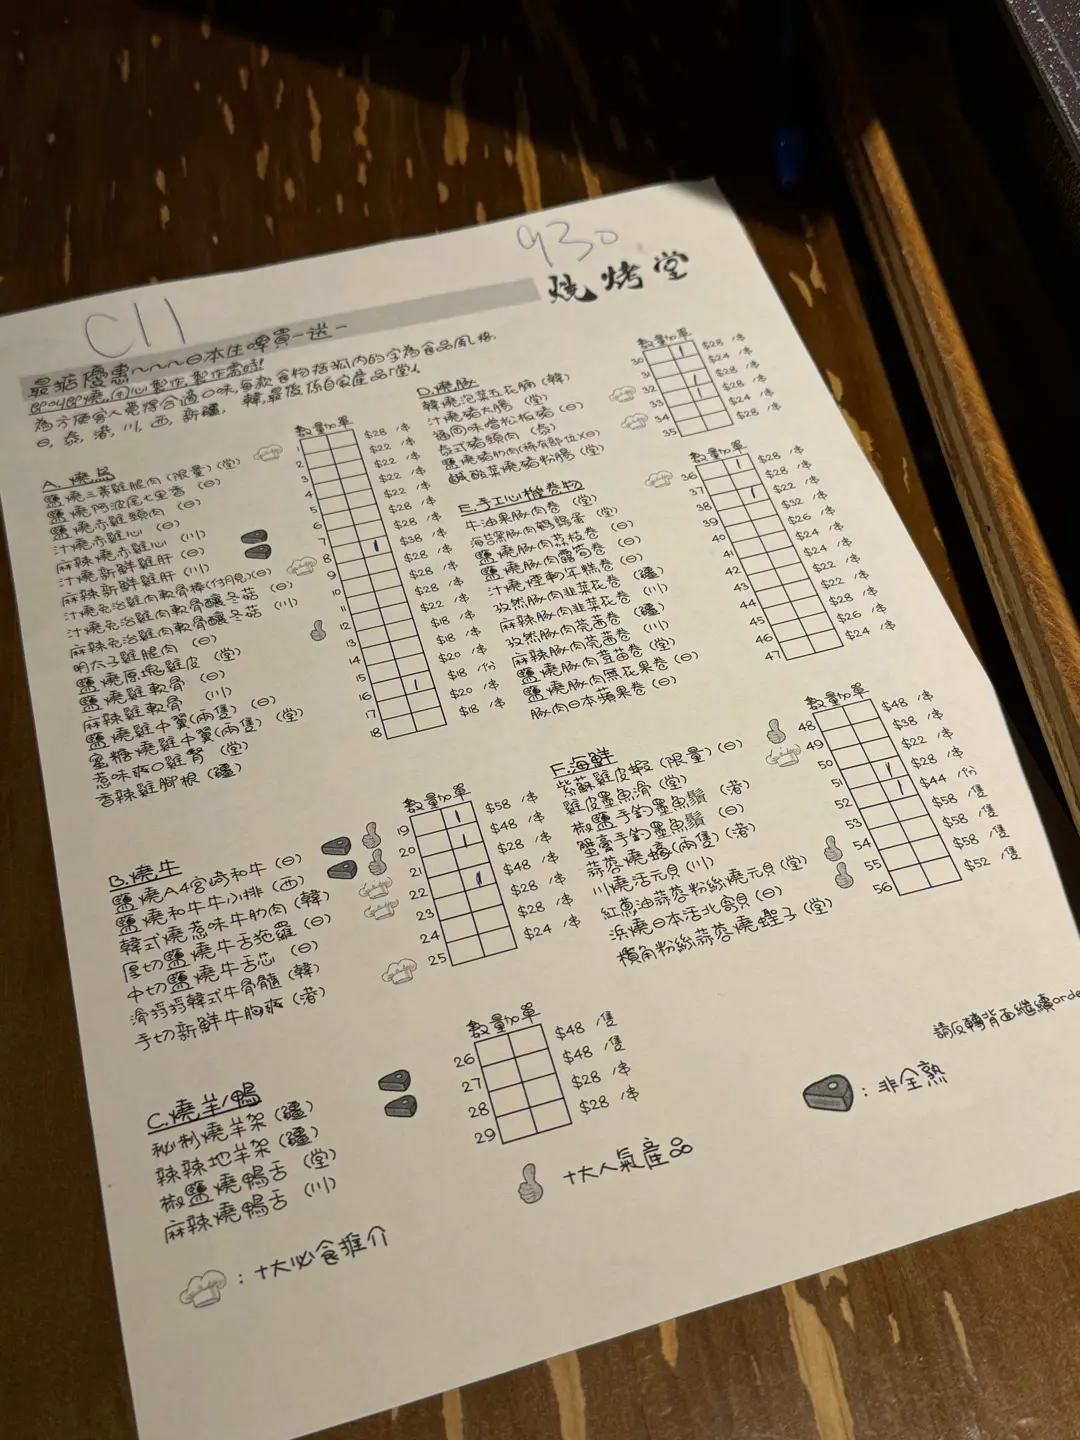 930
燒烤堂
C11
最抵優惠~~~日本生啤買一送一
即叫即燒, 用心製作, 製作需時!
為方便客人選擇合適口味, 每款食物括弧內的字為食品風格,
日, 泰, 港, 川, 西, 新疆, 韓, 最後係自家產品「堂」
A. 燒鳥
數量 加單
鹽燒三素雞腿肉(限量)(堂) 1 $28 /串
鹽燒阿波尾七里香 (日) 2 $22 /串
鹽燒赤雞頸肉 (日) 3 $22 /串
汁燒赤雞心 (日) 4 $22 /串
麻辣燒赤雞心 (川) 5 $22 /串
汁燒新鮮雞肝 (日) 6 $28 /串
麻辣新鮮雞肝 (川) 7 $28 /串
汁燒免治雞肉軟骨棒(付月見)(日) 8 | $38 /串
汁燒免治雞肉軟骨釀冬菇 (日) 9 $28 /串
麻辣免治雞肉軟骨釀冬菇 (川) 10 $28 /串
明太子雞腿肉 (日) 11 $28 /串
鹽燒原塊雞皮 (堂) 12 $22 /串
鹽燒雞軟骨 (日) 13 $18 /串
麻辣雞軟骨 (川) 14 $18 /串
鹽燒雞中翼(兩隻) (日) 15 $20 /串
蜜糖燒雞中翼(兩隻) (堂) 16 | $18 /份
惹味爽口雞腎 (堂) 17 $20 /串
香辣雞腳根 (疆) 18 $18 /串
B. 燒牛
數量 加單
鹽燒A4宮崎和牛 (日) 19 | $58 /串
鹽燒和牛牛小排 (西) 20 | $48 /串
韓式燒惹味牛肋肉 (韓) 21 $28 /串
厚切鹽燒牛舌拖羅 (日) 22 | $48 /串
中切鹽燒牛舌芯 (日) 23 $28 /串
滑捋捋韓式牛骨髓 (韓) 24 $28 /串
手切新鮮牛胸爽 (港) 25 $24 /串
C. 燒羊/鴨
數量 加單
秘制燒羊架 (疆) 26 $48 /隻
辣辣地羊架 (疆) 27 $48 /隻
椒鹽燒鴨舌 (堂) 28 $28 /串
麻辣燒鴨舌 (川) 29 $28 /串
D. 燒豚
數量 加單
韓燒泡菜五花腩 (韓) 30 | $28 /串
汁燒豬大腸 (堂) 31 $24 /串
福岡味噌松板豬 (日) 32 | $28 /串
泰式豬頸肉 (泰) 33 $28 /串
鹽燒豬肋肉(稀有部位)(日) 34 $24 /串
鹹酸菜燒豬粉腸 (堂) 35 $28 /串
E. 手工心機卷物
數量 加單
牛油果豚肉卷 (堂) 36 | $28 /串
海苔黑豚肉鵪鶉蛋 (堂) 37 | $28 /串
鹽燒豚肉荔枝卷 (日) 38 $22 /串
鹽燒豚肉露筍卷 (日) 39 $32 /串
汁燒煙鴨年糕卷 (日) 40 $26 /串
孜然豚肉韭菜花卷 (疆) 41 $24 /串
麻辣豚肉韭菜花卷 (川) 42 $24 /串
孜然豚肉芫茜卷 (疆) 43 $22 /串
麻辣豚肉芫茜卷 (川) 44 $22 /串
鹽燒豚肉荳苗卷 (堂) 45 $28 /串
鹽燒豚肉無花果卷 (日) 46 $26 /串
豚肉日本蘋果卷 (日) 47 $24 /串
F. 海鮮
數量 加單
紫蘇雞皮蝦 (限量) (日) 48 $48 /串
雞皮墨魚滑 (堂) 49 $38 /串
椒鹽手釣墨魚鬚 (港) 50 $22 /串
蟹膏手釣墨魚鬚 (日) 51 | $28 /串
蒜蓉燒蠔(兩隻) (港) 52 | $44 /份
川燒活元貝 (川) 53 $58 /隻
紅蔥油蒜蓉粉絲燒元貝 (堂) 54 $58 /隻
浜燒日本活北寄貝 (日) 55 $58 /隻
欖角粉絲蒜蓉燒蟶子 (堂) 56 $52 /隻
請反轉背面繼續orde
: 非全熟
十大人氣產品
: 十大必食推介